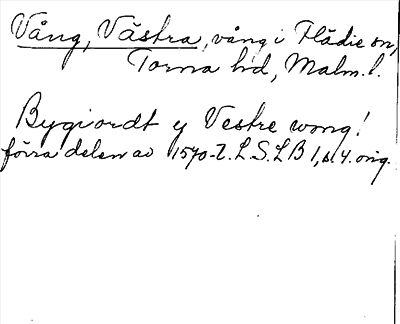 Vång, Västra, vång i Flädie sn,
Torna hd, Malm. l.
Bygiordt y Vestre wong!
förra delen av 1570-t. L.S.L B 1, s. 4. orig.